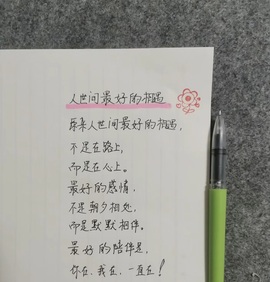 人世间最好的相遇
原来人世间最好的相遇，
不是在路上，
而是在心上。
最好的感情，
不是朝夕相处，
而是默默相伴。
最好的陪伴是，
你在，我在，一直在！